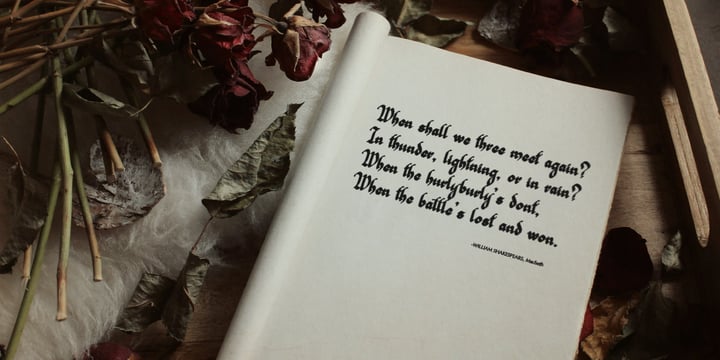 When shall we three meet again?
In thunder, lightning, or in rain?
When the hurlyburly's dont,
When the battle's lost and won.
-WILLIAM SHAKESPEARE, Macbeth